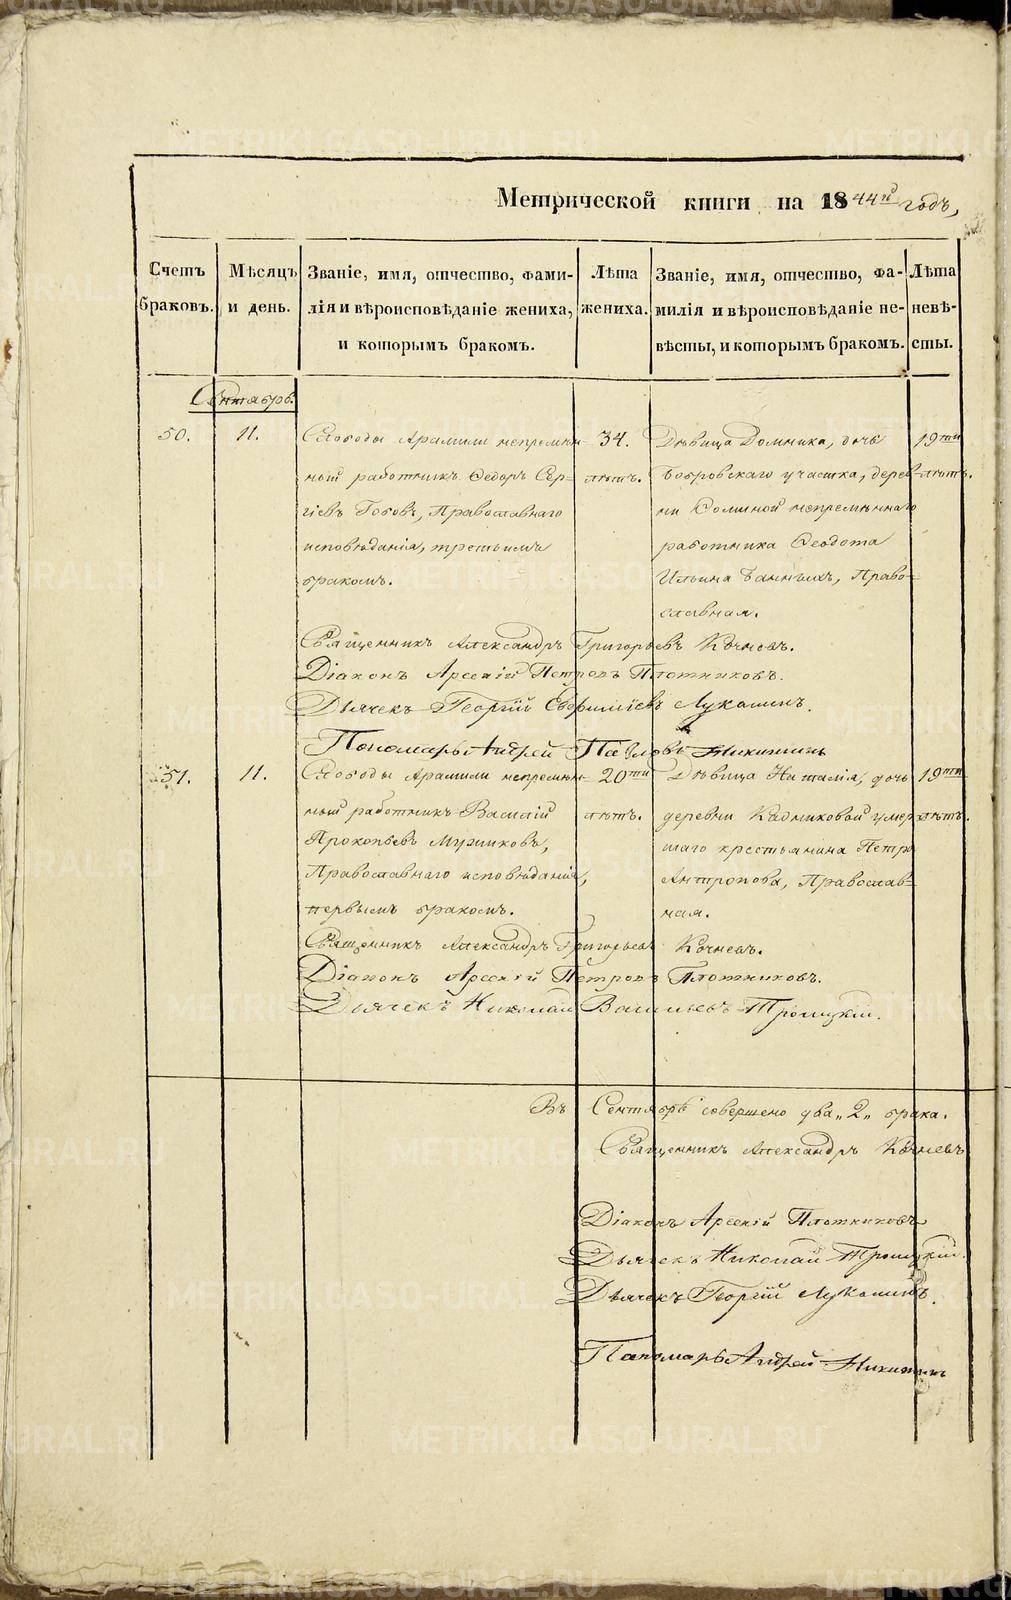 Метрической книги на 1844й годъ,
Счетъ браковъ.
Мѣсяцъ и день.
Званіе, имя, отчество, фами-
лія и вѣроисповѣданіе жениха,
и которымъ бракомъ.
Лѣта
жениха.
Званіе, имя, отчество, фа-
милія и вѣроисповѣданіе не-
вѣсты, и которымъ бракомъ.
Лѣта
невѣ-
сты.
Сентябрь.
50.
11.
Слободы Арамили непремѣн-
ный работникъ Ѳедоръ Сер-
гіевъ Православнаго
исповѣданія, третьимъ
бракомъ.
34.
лѣтъ.
Дѣвица Домника, дочь
Бобровскаго участка, дерев-
ни непремѣннаго
работника Ѳеодота
Ильина Банныхъ, Право-
славная.
19ти
лѣтъ.
Священникъ Александръ Григорьевъ Кочневъ.
Діаконъ Арсеній Петровъ Плотниковъ.
Дьячекъ Георгій Евфиміевъ Луканинъ.
Пономарь Андрей Павловъ Никитинъ
51.
11.
Слободы Арамили непремѣн-
ный работникъ Василій
Прокопьевъ
Православнаго исповѣданія,
первымъ бракомъ.
20ти
лѣтъ.
Дѣвица Наталія, дочь
деревни Кадниковой умер-
шаго крестьянина Петра
Антропова, Православ-
ная.
19ти
лѣтъ.
Священникъ Александръ Григорьевъ Кочневъ.
Діаконъ Арсеній Петровъ Плотниковъ.
Дьячекъ Николай Васильевъ Троицкій.
Въ Сентябрѣ совершено два „2„ брака.
Священникъ Александръ Кочневъ
Діаконъ Арсеній Плотниковъ
Дьячекъ Николай Троицкій.
Дьячекъ Георгій Луканинъ.
Пономарь Андрей Никитинъ
METRIKI.GASO-URAL.RU